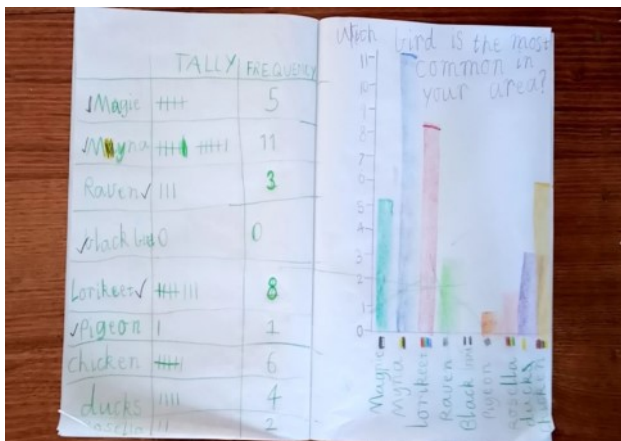 TALLY FREQUENCY
Magie 5
Myna 11
Raven 3
black bird 0 0
Lorikeet 8
Pigeon 1
chicken 6
ducks 4
Rosella 2
Which bird is the most
common in
your area?
11
10
9
8
7
6
5
4
3
2
1
0
Magpie
Myna
Lorikeet
Raven
Black bird
Pigeon
Rosella
ducks
chicken